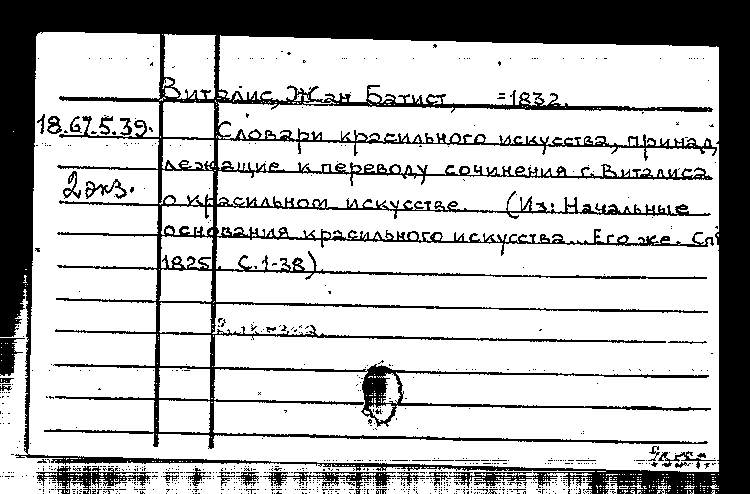 Виталис, Жан Батист, =1832.
18.67.5.39.
Словари красильного искусства, принад,
лежащие к переводу сочинения г. Виталиса
2 экз.
о красильном искусстве. (Из: Начальные
основания красильного искусства... Его же. Спб
1825. С. 1-38)